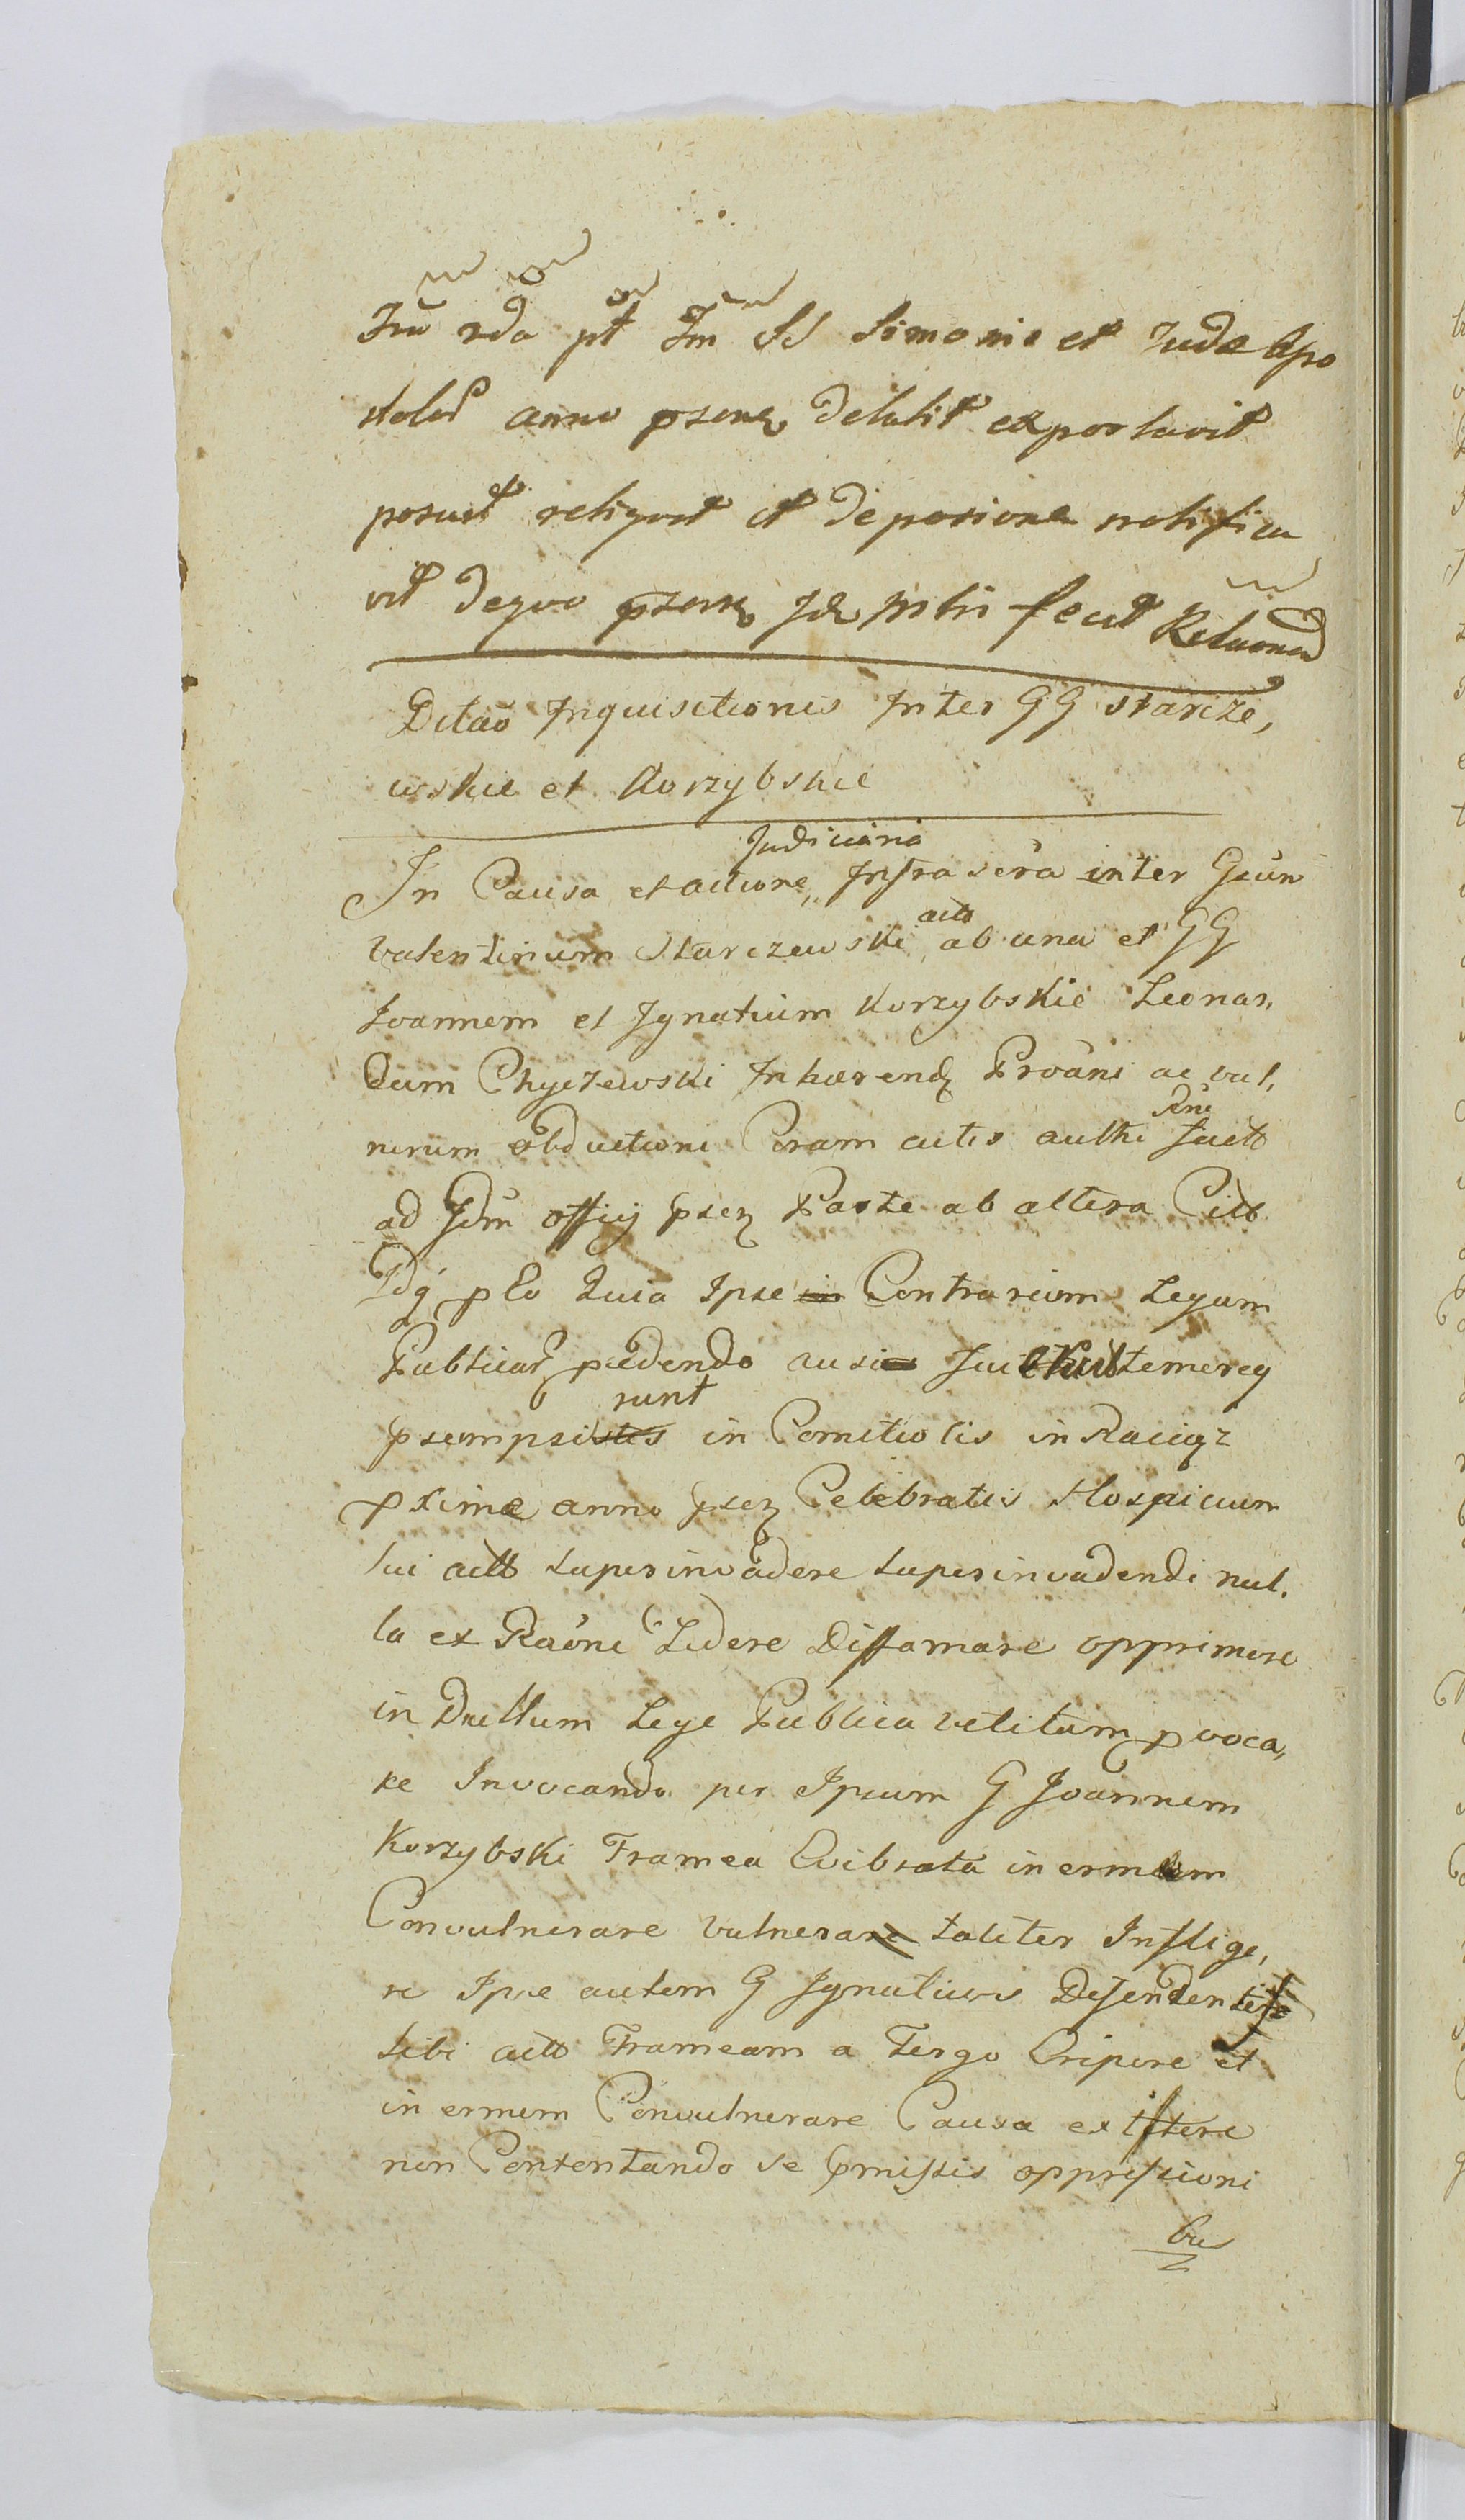 Frã rda pt Fm SS Simonis et Judæ Apo
stolor anno psenẽ detulit exportavit
posuit reliquit et de positione notifica
vit dequo psens Jde Mtri fecit Relaonem
Ditaõ Inquisitionis Inter GG starcze,
wskie et Korzybskie
Judiciaria
In Causa et actione,, Infrascra inter Gsum
valentinum Starczewski acto ab una et GG
Joannem et Ignatium Korzybskie Leonar,
dum Chyczewski Inhærendo Proani ac vul,
nerum obductioni Coram actis authi Rni fact
ad Idm officij psen Parte ab altera Citt
Idq p Eo Quia Ipse in Contrarium Legum
Publicar pcedendo ausi temereq
psempsistis runt in Comitiolis in Raciąz
pxime anno psen Celebratis Hospicium
sui actt superinvadere superinvadendi nul.
la ex Raone Ledere Diffamare opprimere
in Duellum Lege Publica vetitum pvoca,
re Invocando per Ipsum G Joannem
Korzybski Framea Evibrata inermem
Convulnerare vulnerare taliter Inflige,
re Ipse autem G Ignatius Defendenti
sibi actt Frameam a Tergo Eripere et
inermem Convulnerare Causa existere
non Contentando se pmissis oppressioni
bus